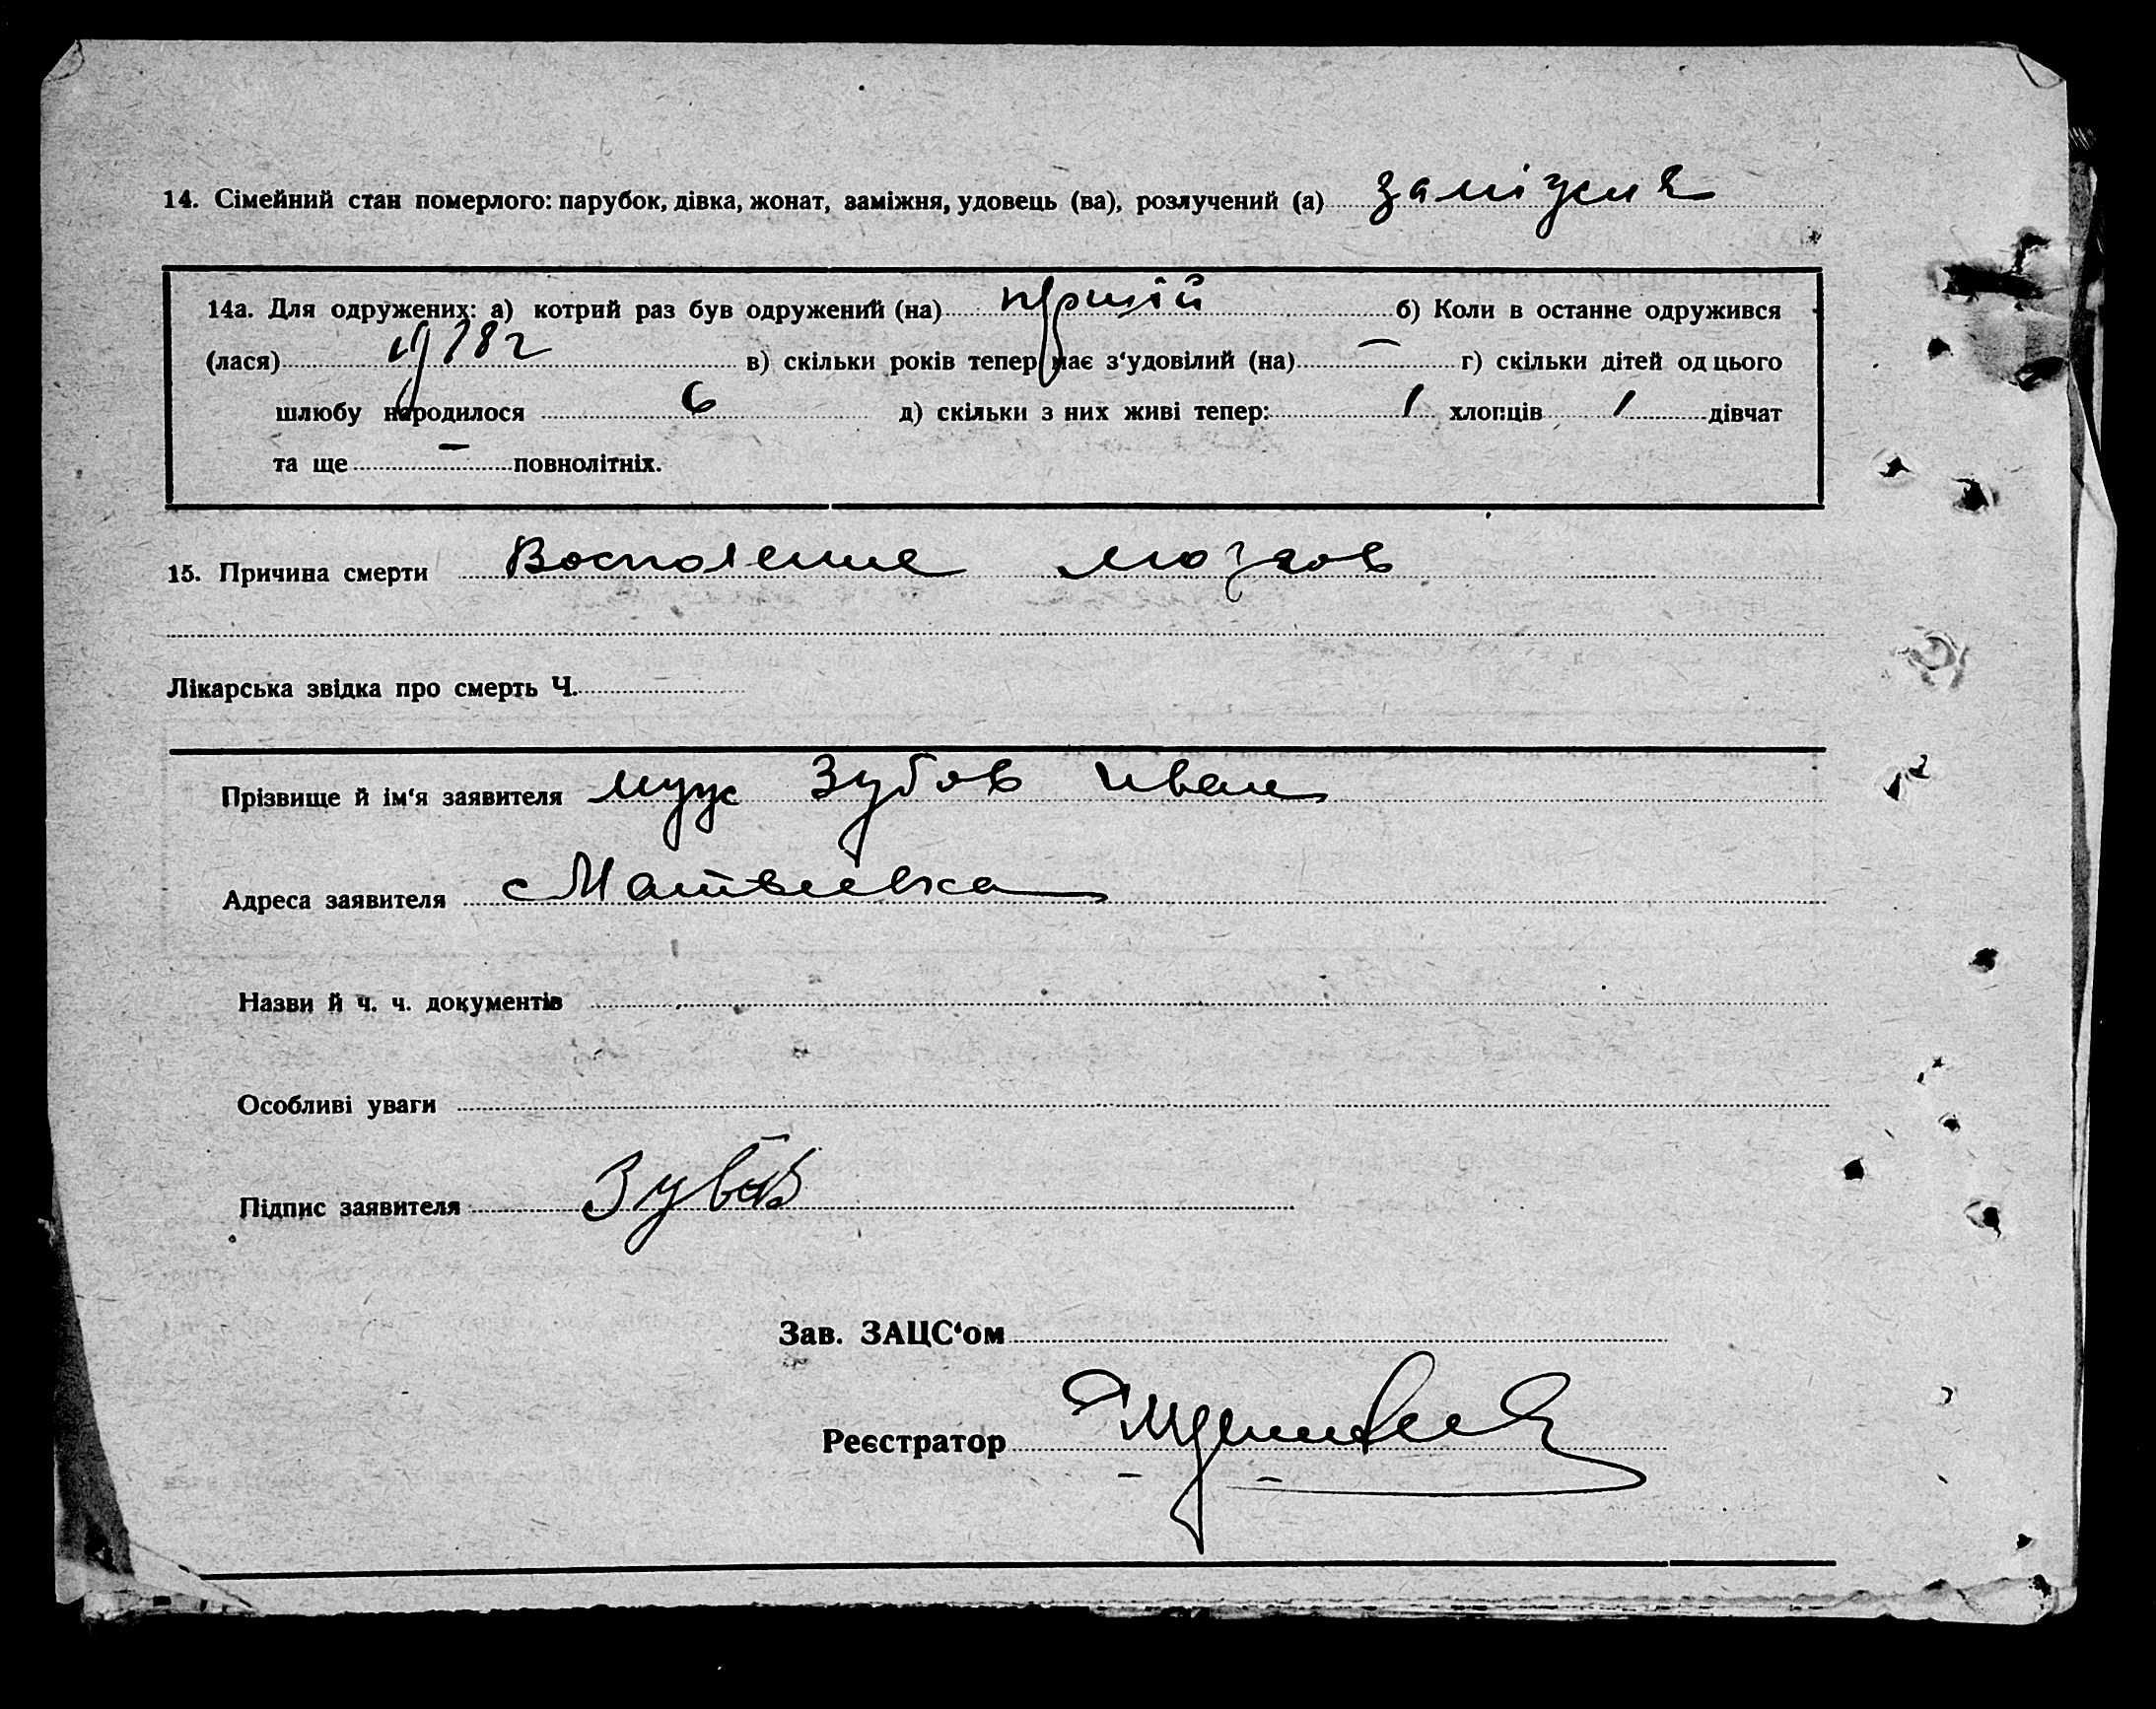 14. Сімейний стан померлого: парубок, дівка, жонат, заміжня, удовець (ва), розлучений (а) заміжня
14а. Для одружених: а) котрий раз був одружений (на) перший б) Коли в останне одружився
(лася) 1918г в) скільки років тепер має з'удовілий (на) — г) скільки дітей од цього
шлюбу народилося 6 д) скільки з них живі тепер: 1 хлопців 1 дівчат
та ще — повнолітніх.
15. Причина смерти Воспаление мозгов
Лікарська звідка про смерть Ч.
Прізвище й ім'я заявителя муж Зубов Иван
Адреса заявителя с Матвеевка
Назви й ч. ч. документів
Особливі уваги
Підпис заявителя Зубов
Зав. ЗАЦС'ом
Реєстратор